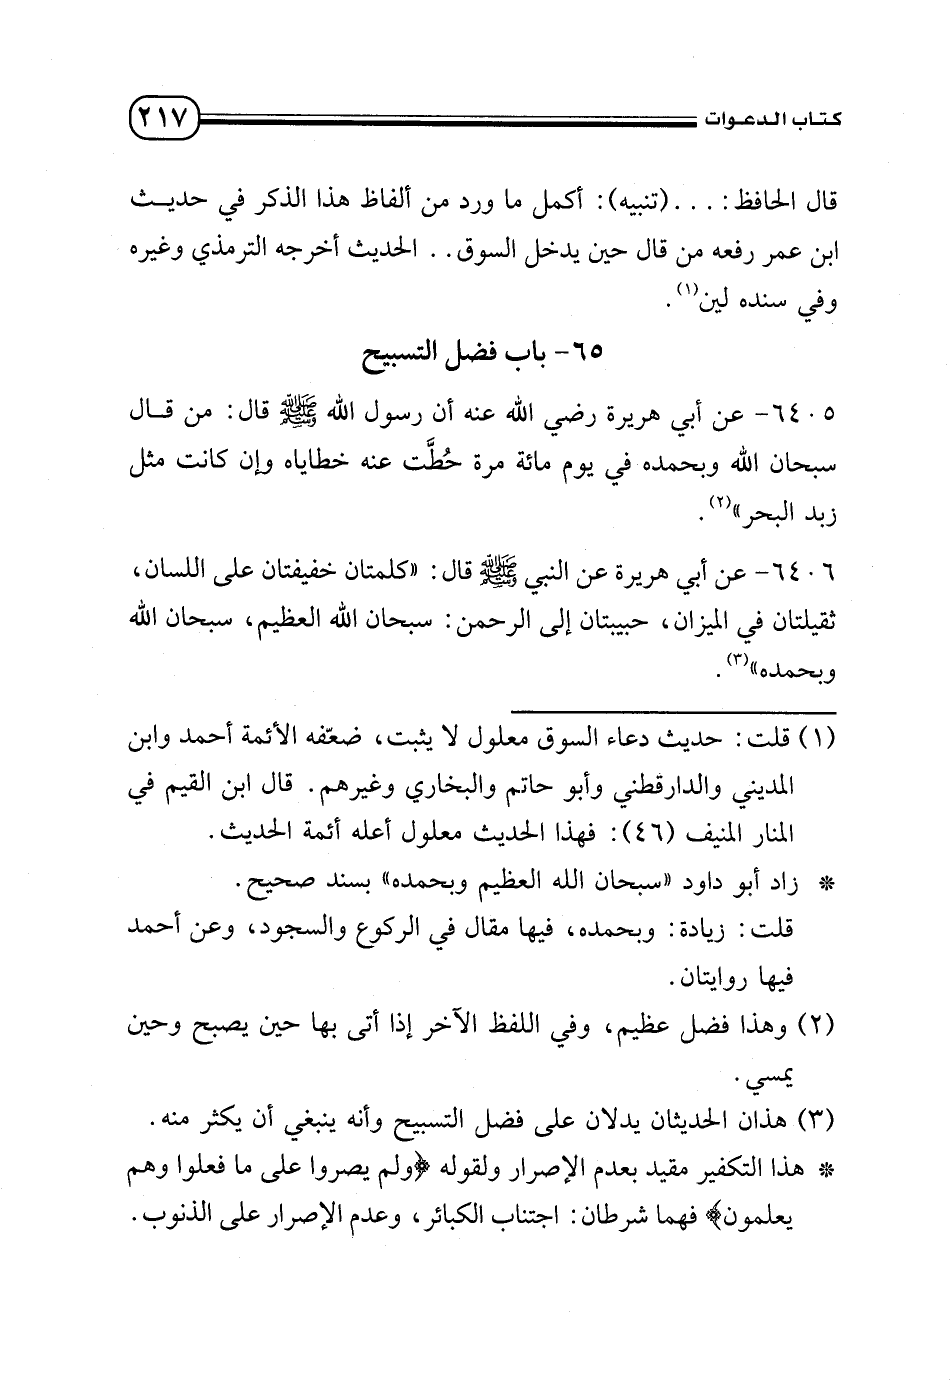 كتاب الدعوات ٢١٧
قال الحافظ: . . .(تنبيه): أكمل ما ورد من ألفاظ هذا الذكر في حديث
ابن عمر رفعه من قال حين يدخل السوق. . الحديث أخرجه الترمذي وغيره
وفي سنده لين(١).
٦٥- باب فضل التسبيح
٦٤٠٥- عن أبي هريرة رضي الله عنه أن رسول الله ﷺ قال: من قال
سبحان الله وبحمده في يوم مائة مرة حُطَّت عنه خطاياه وإن كانت مثل
زبد البحر»(٢).
٦٤٠٦- عن أبي هريرة عن النبي ﷺ قال: «كلمتان خفيفتان على اللسان،
ثقيلتان في الميزان، حبيبتان إلى الرحمن: سبحان الله العظيم، سبحان الله
وبحمده»(٣).
(١) قلت: حديث دعاء السوق معلول لا يثبت، ضعّفه الأئمة أحمد وابن
المديني والدارقطني وأبو حاتم والبخاري وغيرهم. قال ابن القيم في
المنار المنيف (٤٦): فهذا الحديث معلول أعله أئمة الحديث.
* زاد أبو داود «سبحان الله العظيم وبحمده» بسند صحيح.
قلت: زيادة: وبحمده، فيها مقال في الركوع والسجود، وعن أحمد
فيها روايتان.
(٢) وهذا فضل عظيم، وفي اللفظ الآخر إذا أتى بها حين يصبح وحين
يمسي.
(٣) هذان الحديثان يدلان على فضل التسبيح وأنه ينبغي أن يكثر منه.
* هذا التكفير مقيد بعدم الإصرار ولقوله ﴿ولم يصروا على ما فعلوا وهم
يعلمون﴾ فهما شرطان: اجتناب الكبائر، وعدم الإصرار على الذنوب.